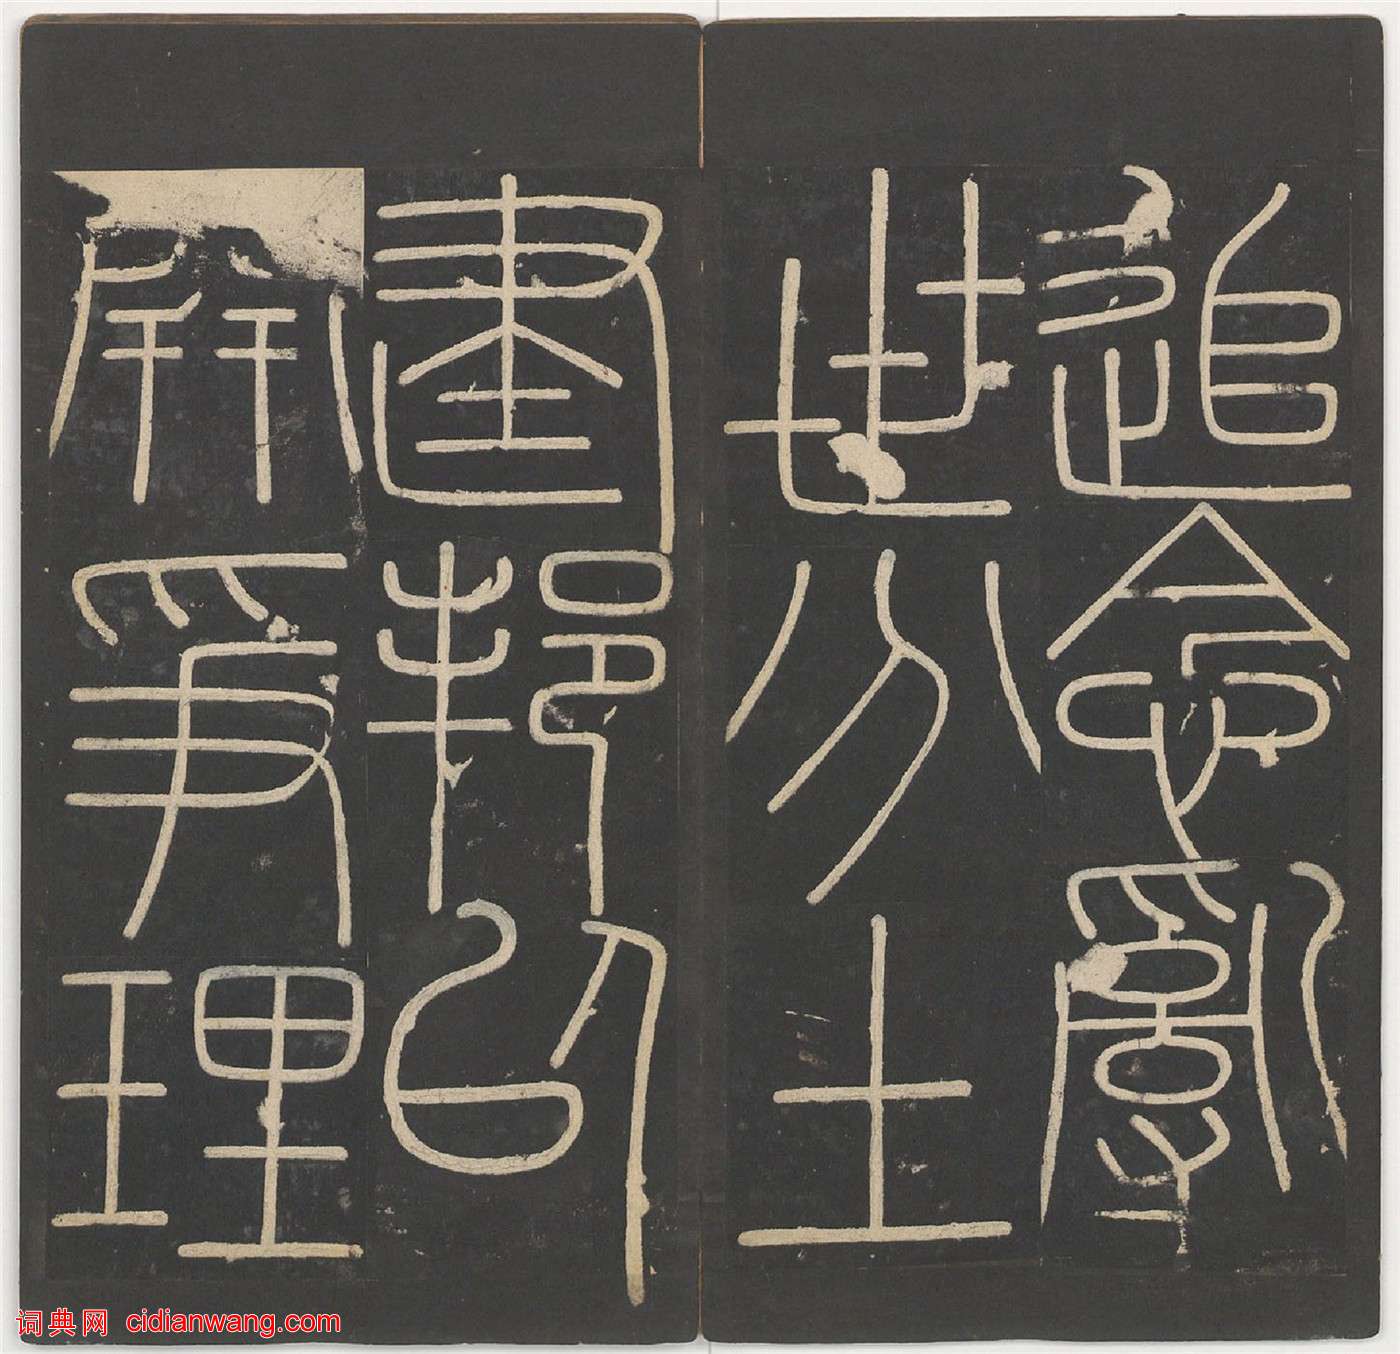 追念亂
世分土
建邦以
開爭理
词典网 cidianwang.com